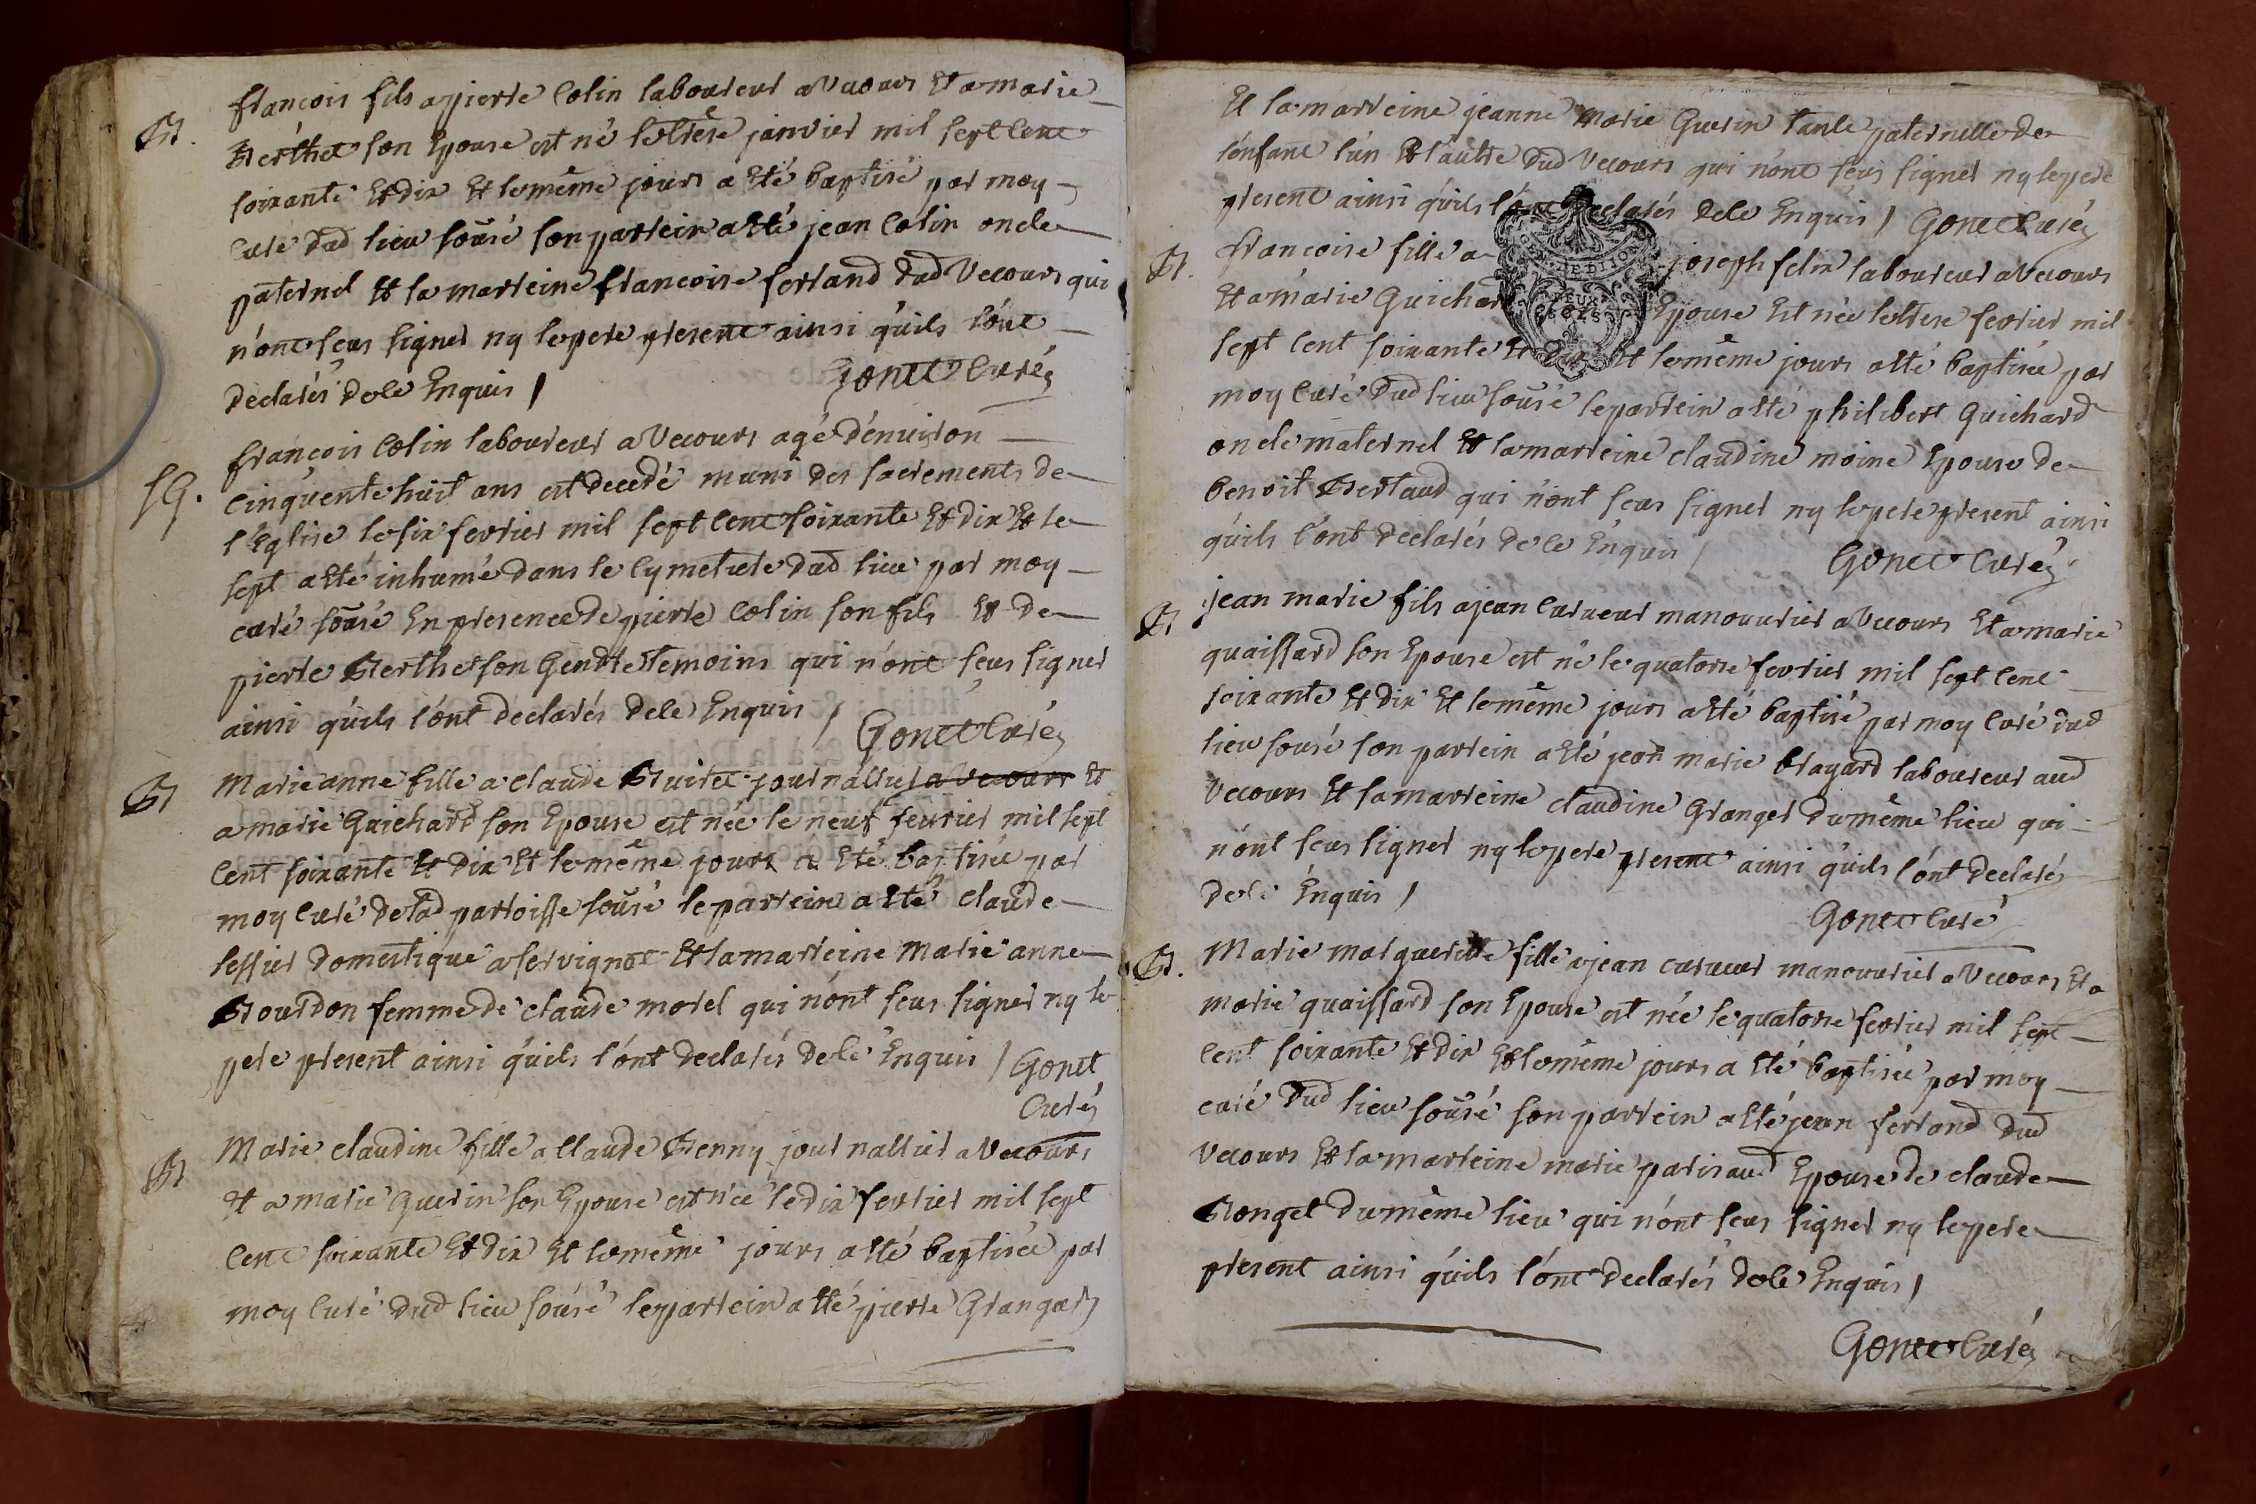 françois fils a pierre Colin laboureur a Vecours Et a marie
Bt.
Berthet son Epouse est né le trese janvier mil sept Cent
soixante Et dix Et le même jours a Eté baptisé par moy
Curé dud lieu sousé son parrein a Eté jean Colin oncle
paternel Et la marreine françoise ferrand dud Vecours qui
n'ont seus signer ny le pere present ainsi quils l'ont
declarés de ce Enquis / Gonet Curé
françois Colin laboureur a Vecours agé d'enuiron
SG.
Cinquente huit ans est decedé muni des sacrements de
l'Eglise le six fevrier mil sept Cent soixante Et dix Et le
sept a Eté inhumé dans le Cymetiere dud lieu par moy
curé sousé En presence de pierre Colin son fils Et de
pierre Berthet son Gendre temoins qui n'ont seus signer
ainsi quils l'ont declarés de ce Enquis / Gonet Curé
Bt
Marie anne fille a claude Buiret journallier a Vecours Et
a marie Guichard son Epouse est née le neuf feurier mil sept
Cent soixante Et dix Et le même jours a Eté baptisée par
moy Curé de lad parroisse sousé le parrein a Eté claude
tessier domestique a servignat Et la marreine Marie anne
Bourdon femme de claude morel qui n'ont seus signer ny le
pere present ainsi quils l'ont declarés de ce Enquis / Gonet
Curé
Bt
Marie claudine fille a Claude Benny journallier a Vecours
Et a marie Guerin son Epouse est née le dix fevrier mil sept
Cent soixante Et dix Et le même jours a Eté baptisée par
moy Curé dud lieu sousé le parrein a Eté pierre Grangard
Et la marreine jeanne Marie Guerin tante paternelle de
l'enfant l'un Et l'autre dud Vecours qui n'ont seus signer ny le pere
present ainsi quils l'ont declarés de ce Enquis / Gonet Curé
GEN. DE DIJON
DEUX
SOLS
Bt.
françoise fille a joseph felix laboureur a Vecours
Et a marie Guichard son Epouse Est née le trese fevrier mil
sept Cent soixante Et dix Et le même jours a Eté baptisée par
moy Curé dud lieu sousé le parrein a Eté philibert Guichard
oncle maternel Et la marreine claudine moine Epouse de
benoit Bertaud qui n'ont seus signer ny le pere present ainsi
quils l'ont declarés de ce Enquis / Gonet Curé
Bt
jean marie fils a jean Curueur manouurier a Vecours Et a marie
quaissard son Epouse est né le quatorse fevrier mil sept Cent
soixante Et dix Et le même jours a Eté baptisé par moy Curé dud
lieu sousé son parrein a Eté jean marie brayard laboureur aud
Vecours Et la marreine claudine Granger du même lieu qui
n'ont seus signer ny le pere present ainsi quils l'ont declarés
de ce Enquis /
Gonet Curé
Bt.
Marie marguerite fille a jean curueur manouurier a Vecours Et a
marie quaissard son Epouse est née le quatorse fevrier mil sept
Cent soixante Et dix Et le même jours a Eté baptisée par moy
curé dud lieu sousé son parrein a Eté jean ferrand dud
Vecours Et la marreine marie parisaud Epouse de claude
Bonget du même lieu qui n'ont seus signer ny le pere
present ainsi quils l'ont declarés de ce Enquis /
Gonet Curé